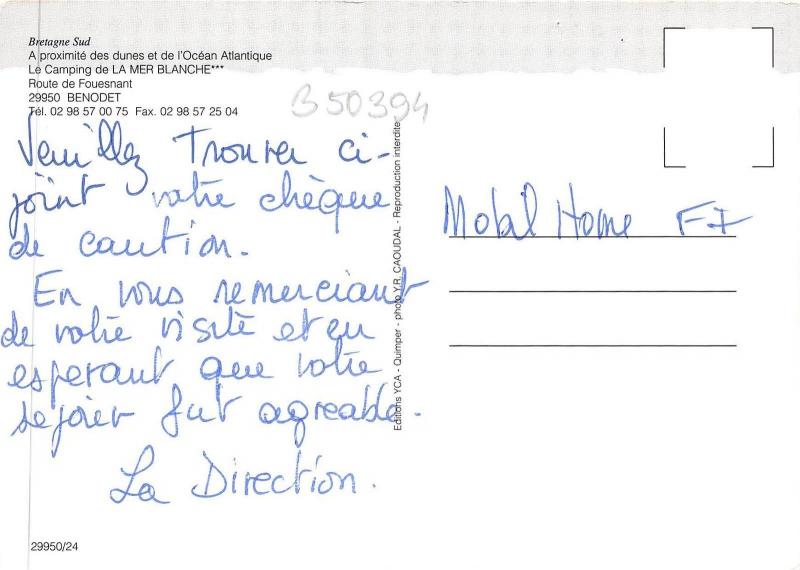 Bretagne Sud
A proximité des dunes et de l'Océan Atlantique
Le Camping de LA MER BLANCHE***
Route de Fouesnant
29950 BENODET
Tél. 02 98 57 00 75 Fax. 02 98 57 25 04
B 50394
Veuillez trouver ci-
joint votre chèque
de caution.
En vous remerciant
de votre visite et en
esperant que votre
sejour fut agreable.
La Direction.
Editions YCA - Quimper - photo Y.R. CAOUDAL - Reproduction interdite
Mobil Home F7
29950/24